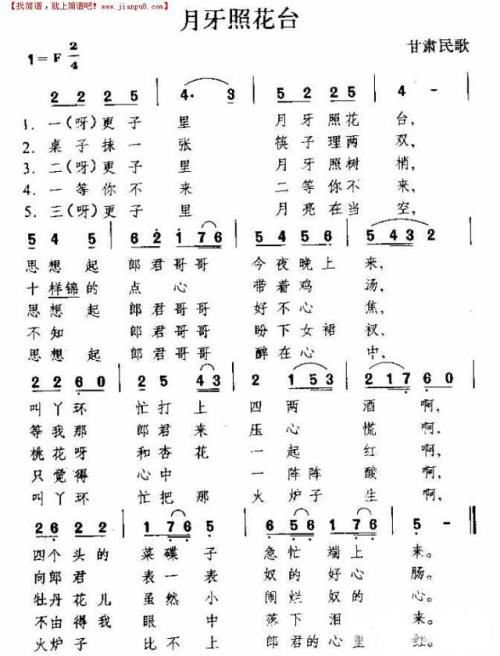 【找简谱，就上简谱吧！www.jianpu8.com】
月牙照花台
1=F 2/4
甘肃民歌
2 2 2 5 4· 3 2 2 2 5 4 -
1. 一(呀)更子里 月牙照花台，
2. 桌子抹一张 筷子理两双，
3. 二(呀)更子里 月牙照树梢，
4. 一等你不来 二等你不来，
5. 三(呀)更子里 月亮在当空，
5 4 5 6 2 1 7 6 5 4 5 6 5 4 3 2
思想起 郎君哥哥 今夜晚上来，
十样锦的 点心 带着鸡汤，
思想起 郎君哥哥 好不心焦，
不知 郎君哥哥 盼下女裙衩，
思想起 郎君哥哥 醉在心中，
2 2 6 0 2 2 5 4 3 2 1 5 3 2 1 7 6 0
叫丫环 忙打上 四两酒啊，
等我那 郎君来 压心慌啊，
桃花呀 和杏花 一起红啊，
只觉得 心中 一阵阵酸啊，
叫丫环 忙把那 火炉子生啊，
2 6 2 2 1 7 6 5 6 5 6 1 7 6 5 -
四个头的 菜碟子 急忙端上来。
向郎君 表一表 奴的好心肠。
牡丹花儿 虽然小 闹烂奴的心。
不由得我 眼中 落下泪来。
火炉子 比不上 郎君的心里红。